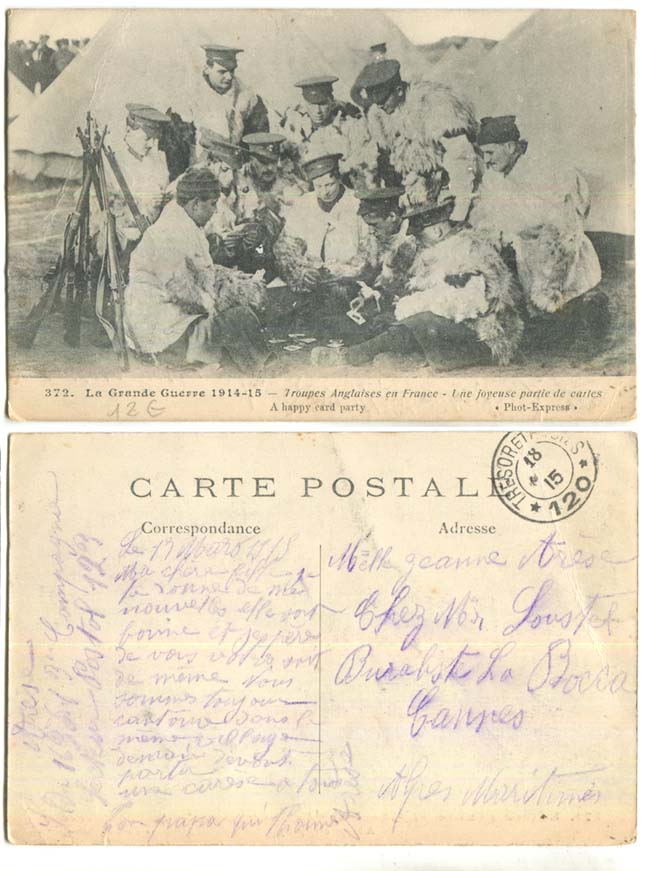 372. La Grande Guerre 1914-15 — Troupes Anglaises en France - Une joyeuse partie de cartes
A happy card party
• Phot-Express •
12 €
CARTE POSTALE
TRESOR ET POSTES
18
15
★ 120 ★
Correspondance
Adresse
Le 17 Mars 1915
Ma chère fille je
te donne de mes
nouvelles elle sont
bonne et j'espère
de vous
de meme Nous
sommes toujour
cantonné dans le
meme village
demain
une
ton papa qui t'aime
Arèse
Melle Jeanne Arèse
Chez Mr Loustel
Buraliste La Bocca
Cannes
Alpes Maritimes
Arèse